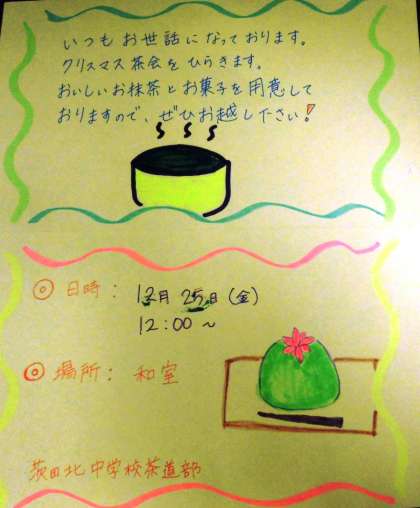 いつもお世話になっております。
クリスマス茶会をひらきます。
おいしいお抹茶とお菓子を用意して
おりますので、ぜひお越しださい!
◎ 日時： 12月 25日 (金)
12:00 ～
◎ 場所： 和室
荻田北中学校茶道部